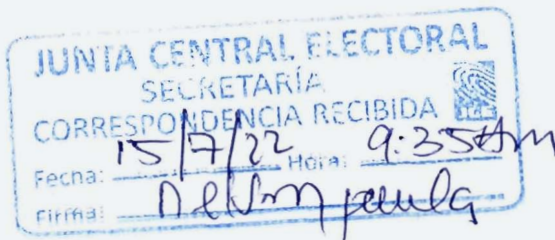 JUNTA CENTRAL ELECTORAL
SECRETARÍA
CORRESPONDENCIA RECIBIDA
Fecha: 15/7/22 Hora: 9:35 Am
Firma: